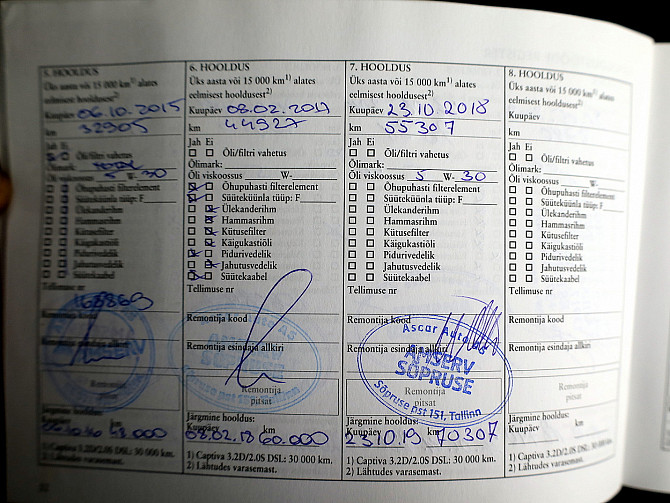 5. HOOLDUS
Üks aasta või 15 000 km¹⁾ alates
eelmisest hooldusest²⁾
Kuupäev 06.10.2015
km 32905
Jah Ei
Õli/filtri vahetus
Õlimark: TOTAL
Õli viskoossus 5 W- 30
Õhupuhasti filterelement
Süüteküünla tüüp: F
Ülekanderihm
Hammasrihm
Kütusefilter
Käigukastiõli
Pidurivedelik
Jahutusvedelik
Süütekaabel
Tellimuse nr
Remontija kood
Remontija esindaja allkiri
Remontija
pitsat
Järgmine hooldus:
Kuupäev km
48.000
1) Captiva 3.2D/2.0S DSL: 30 000 km.
2) Lähtudes varasemast.
6. HOOLDUS
Üks aasta või 15 000 km¹⁾ alates
eelmisest hooldusest²⁾
Kuupäev 08.02.2017
km 44927
Jah Ei
Õli/filtri vahetus
Õlimark:
Õli viskoossus W-
Õhupuhasti filterelement
Süüteküünla tüüp: F
Ülekanderihm
Hammasrihm
Kütusefilter
Käigukastiõli
Pidurivedelik
Jahutusvedelik
Süütekaabel
Tellimuse nr
Remontija kood
Remontija esindaja allkiri
Remontija
pitsat
Järgmine hooldus:
Kuupäev km
08.02.18 60.000
1) Captiva 3.2D/2.0S DSL: 30 000 km.
2) Lähtudes varasemast.
7. HOOLDUS
Üks aasta või 15 000 km¹⁾ alates
eelmisest hooldusest²⁾
Kuupäev 23.10.2018
km 55307
Jah Ei
Õli/filtri vahetus
Õlimark:
Õli viskoossus 5 W- 30
Õhupuhasti filterelement
Süüteküünla tüüp: F
Ülekanderihm
Hammasrihm
Kütusefilter
Käigukastiõli
Pidurivedelik
Jahutusvedelik
Süütekaabel
Tellimuse nr
Remontija kood
Ascar Auto AS
Remontija esindaja allkiri
AMSERV
SÕPRUSE
Remontija
pitsat
Sõpruse pst 151, Tallinn
Järgmine hooldus:
Kuupäev km
23.10.19 70307
1) Captiva 3.2D/2.0S DSL: 30 000 km.
2) Lähtudes varasemast.
8. HOOLDUS
Üks aasta või 15 000 km¹⁾ alates
eelmisest hooldusest²⁾
Kuupäev
km
Jah Ei
Õli/filtri vahetus
Õlimark:
Õli viskoossus W-
Õhupuhasti filterelement
Süüteküünla tüüp: F
Ülekanderihm
Hammasrihm
Kütusefilter
Käigukastiõli
Pidurivedelik
Jahutusvedelik
Süütekaabel
Tellimuse nr
Remontija kood
Remontija esindaja allkiri
Remontija
pitsat
Järgmine hooldus:
Kuupäev km
1) Captiva 3.2D/2.0S DSL: 30 000 km.
2) Lähtudes varasemast.